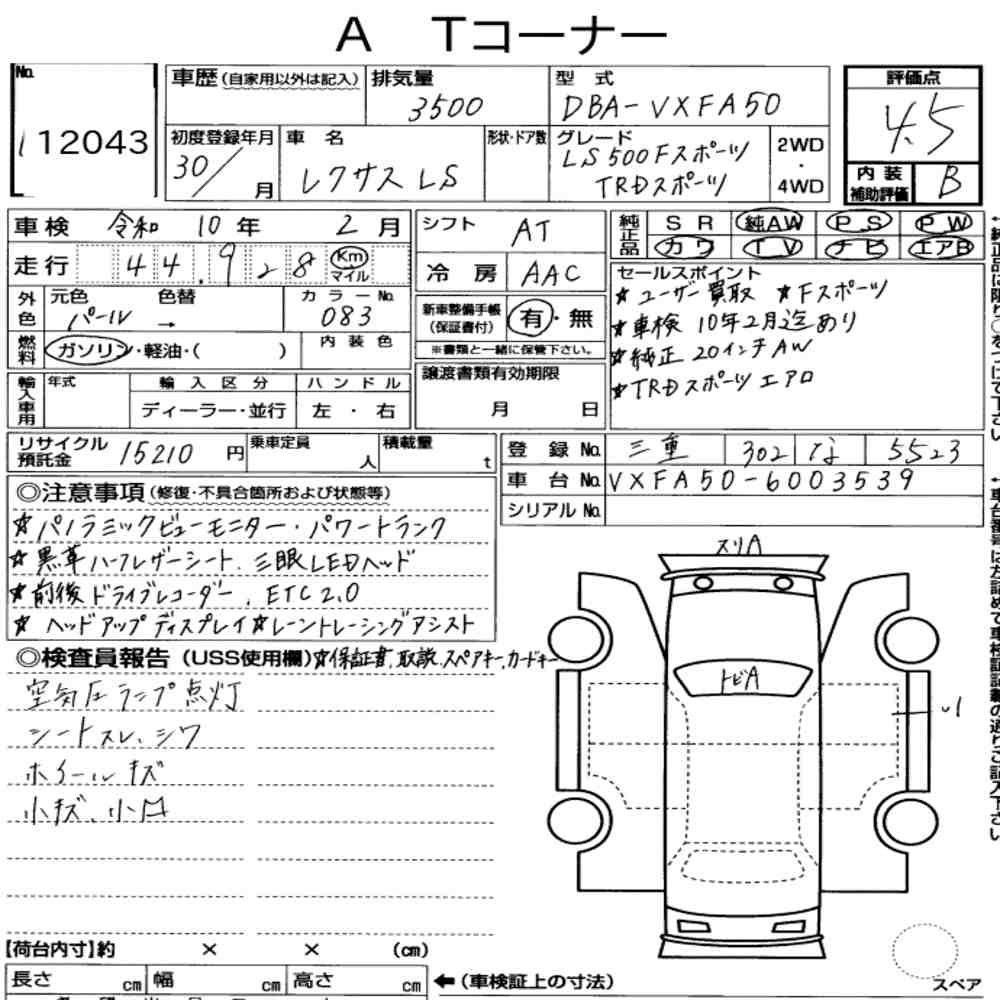 A Tコーナー
No. 12043
車歴(自家用以外は記入) 排気量 3500 型式 DBA-VXFA50
初度登録年月 30/ 月 車名 レクサスLS 形状・ドア数 グレード LS500Fスポーツ TRDスポーツ 2WD・4WD
評価点 4.5
内装補助評価 B
車検 令和 10年 2月
走行 44,928 Km マイル
シフト AT
冷房 AAC
純正品 SR 純AW PS PW
カワ TV ナビ エアB
外色 元色 パール 色替 → カラーNo. 083
燃料 ガソリン・軽油・( ) 内装色
新車整備手帳(保証書付) 有・無
※書類と一緒に保管下さい。
輸入車用 年式 輸入区分 ディーラー・並行 ハンドル 左・右
譲渡書類有効期限 月 日
セールスポイント
☆ユーザー買取 ☆Fスポーツ
☆車検 10年2月迄あり
☆純正20インチAW
☆TRDスポーツエアロ
リサイクル預託金 15210円 乗車定員 人 積載量 t
登録No. 三重 302 な 5523
車台No. VXFA50-6003539
シリアルNo.
◎注意事項(修復・不具合箇所および状態等)
☆パノラミックビューモニター・パワートランク
☆黒革ハーフレザーシート、三眼LEDヘッド
☆前後ドライブレコーダー、ETC2.0
☆ヘッドアップディスプレイ☆レーントレーシングアシスト
◎検査員報告(USS使用欄)☆保証書、取説、スペアキー、カードキー
空気圧ランプ点灯
シートスレ、シワ
ホイールキズ
小キズ、小凹
スリA
トビA
【荷台内寸】約 × × (cm)
長さ cm 幅 cm 高さ cm
←(車検証上の寸法)
スペア